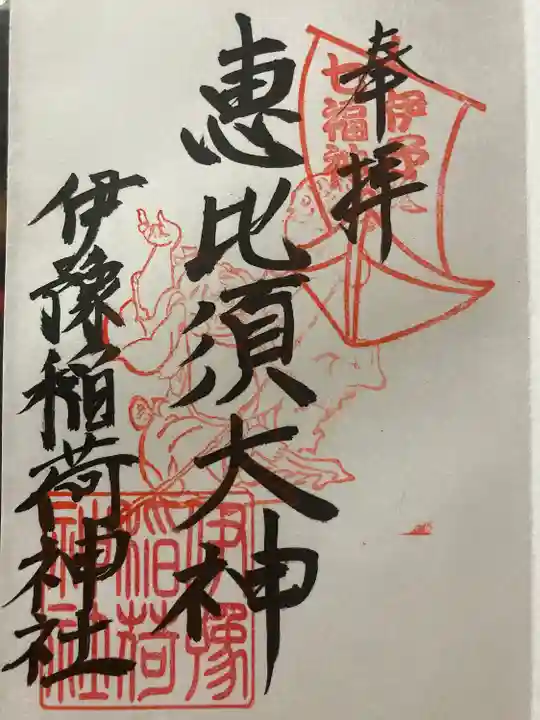 奉拝
伊豫
七福神
恵比須大神
伊豫稲荷神社
伊豫
稲荷
神社